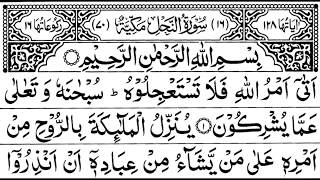 اٰیَاتُهَا ۱۲۸ (۱۶) سُوْرَةُ النَّحْلِ مَكِّیَّةٌ (۷۰) رُكُوْعَاتُهَا ۱۶
بِسْمِ اللّٰهِ الرَّحْمٰنِ الرَّحِیْمِ
اَتٰۤى اَمْرُ اللّٰهِ فَلَا تَسْتَعْجِلُوْهُ ؕ سُبْحٰنَهٗ وَ تَعٰلٰى
عَمَّا یُشْرِكُوْنَ ۱ یُنَزِّلُ الْمَلٰٓىِٕكَةَ بِالرُّوْحِ مِنْ
اَمْرِهٖ عَلٰى مَنْ یَّشَآءُ مِنْ عِبَادِهٖۤ اَنْ اَنْذِرُوْۤا